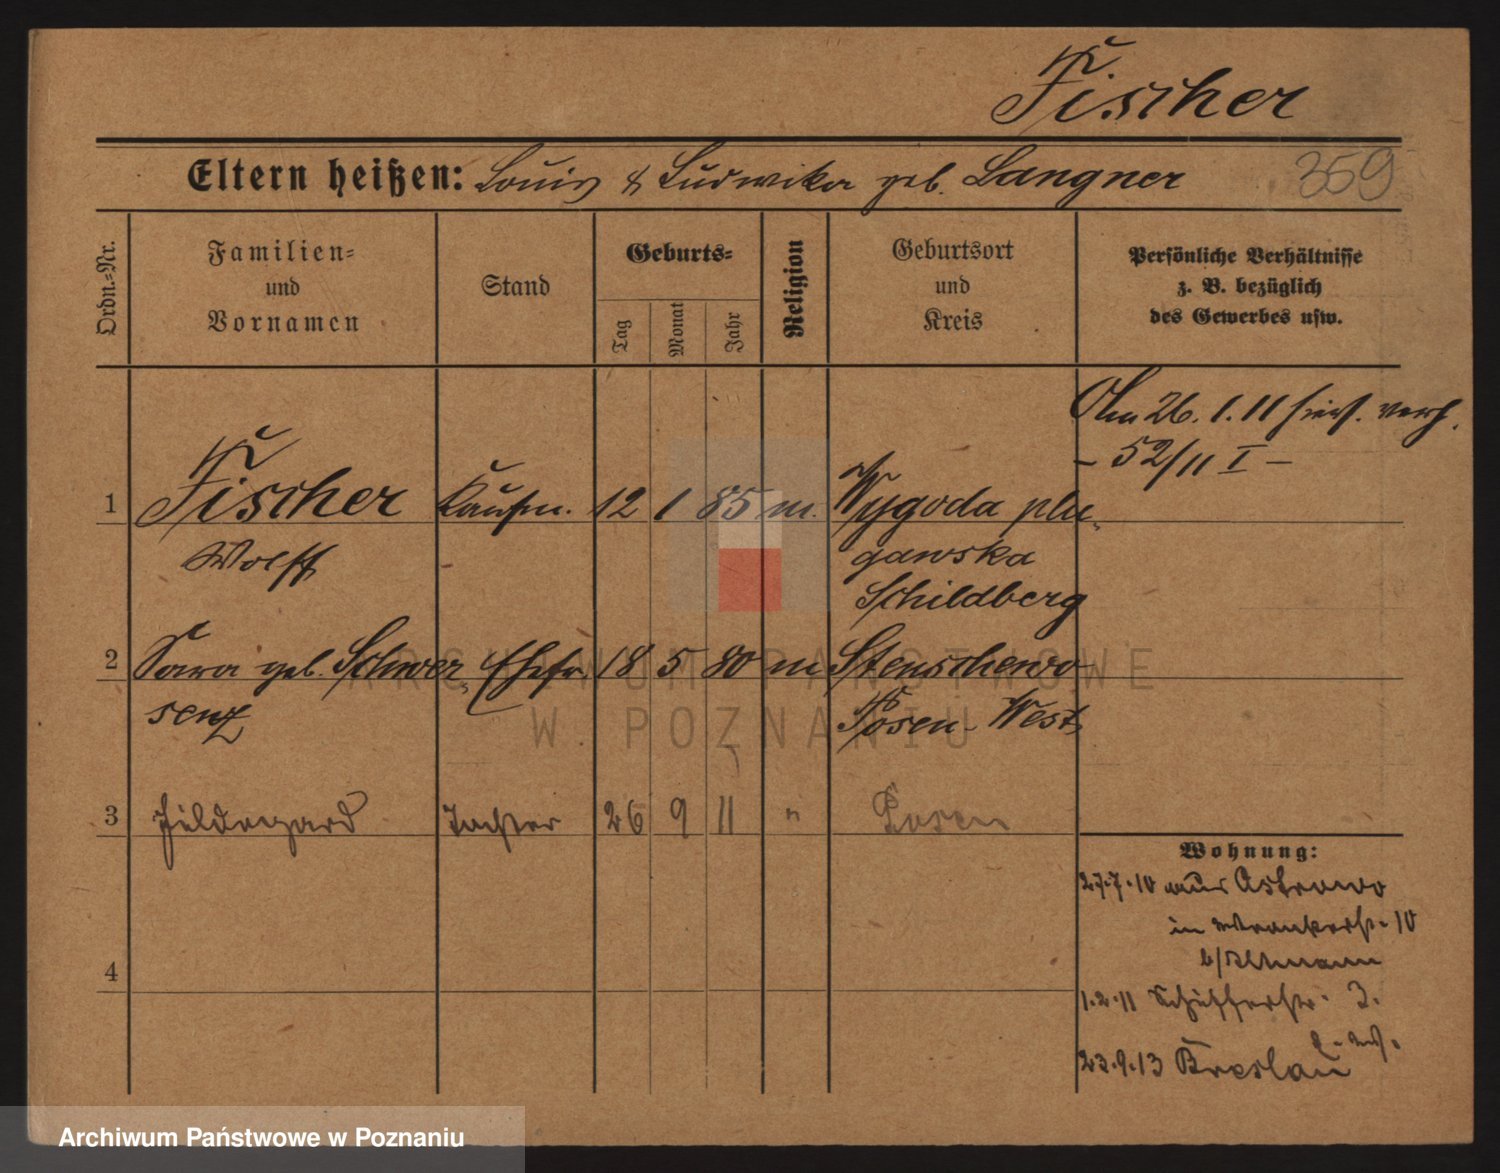 Fischer
Eltern heißen: Louis & Ludwika geb. Langner
359
Ordn.-Nr.
Familien-
und
Vornamen
Stand
Geburts-
Tag
Monat
Jahr
Religion
Geburtsort
und
Kreis
Persönliche Verhältnisse
z. B. bezüglich
des Gewerbes usw.
Am 26.1.11 hier verh.
- 52/11 I -
1 Fischer Kaufm. 12 1 85 m. Wygoda plu-
Wolff gawska
Schildberg
2 Sara geb. Schwer- Ehefr. 18 5 80 m Stenschewo
senz Posen-West
3 Hildegard Tochter 26 9 11 " Posen
4
Wohnung:
27.7.10 aus Ostrowo
in Wronkerstr. 10
b/Altmann
1.2.11 Schifferstr. 3.
23.9.13 Breslau
ARCHIWUM PAŃSTWOWE
W POZNANIU
Archiwum Państwowe w Poznaniu